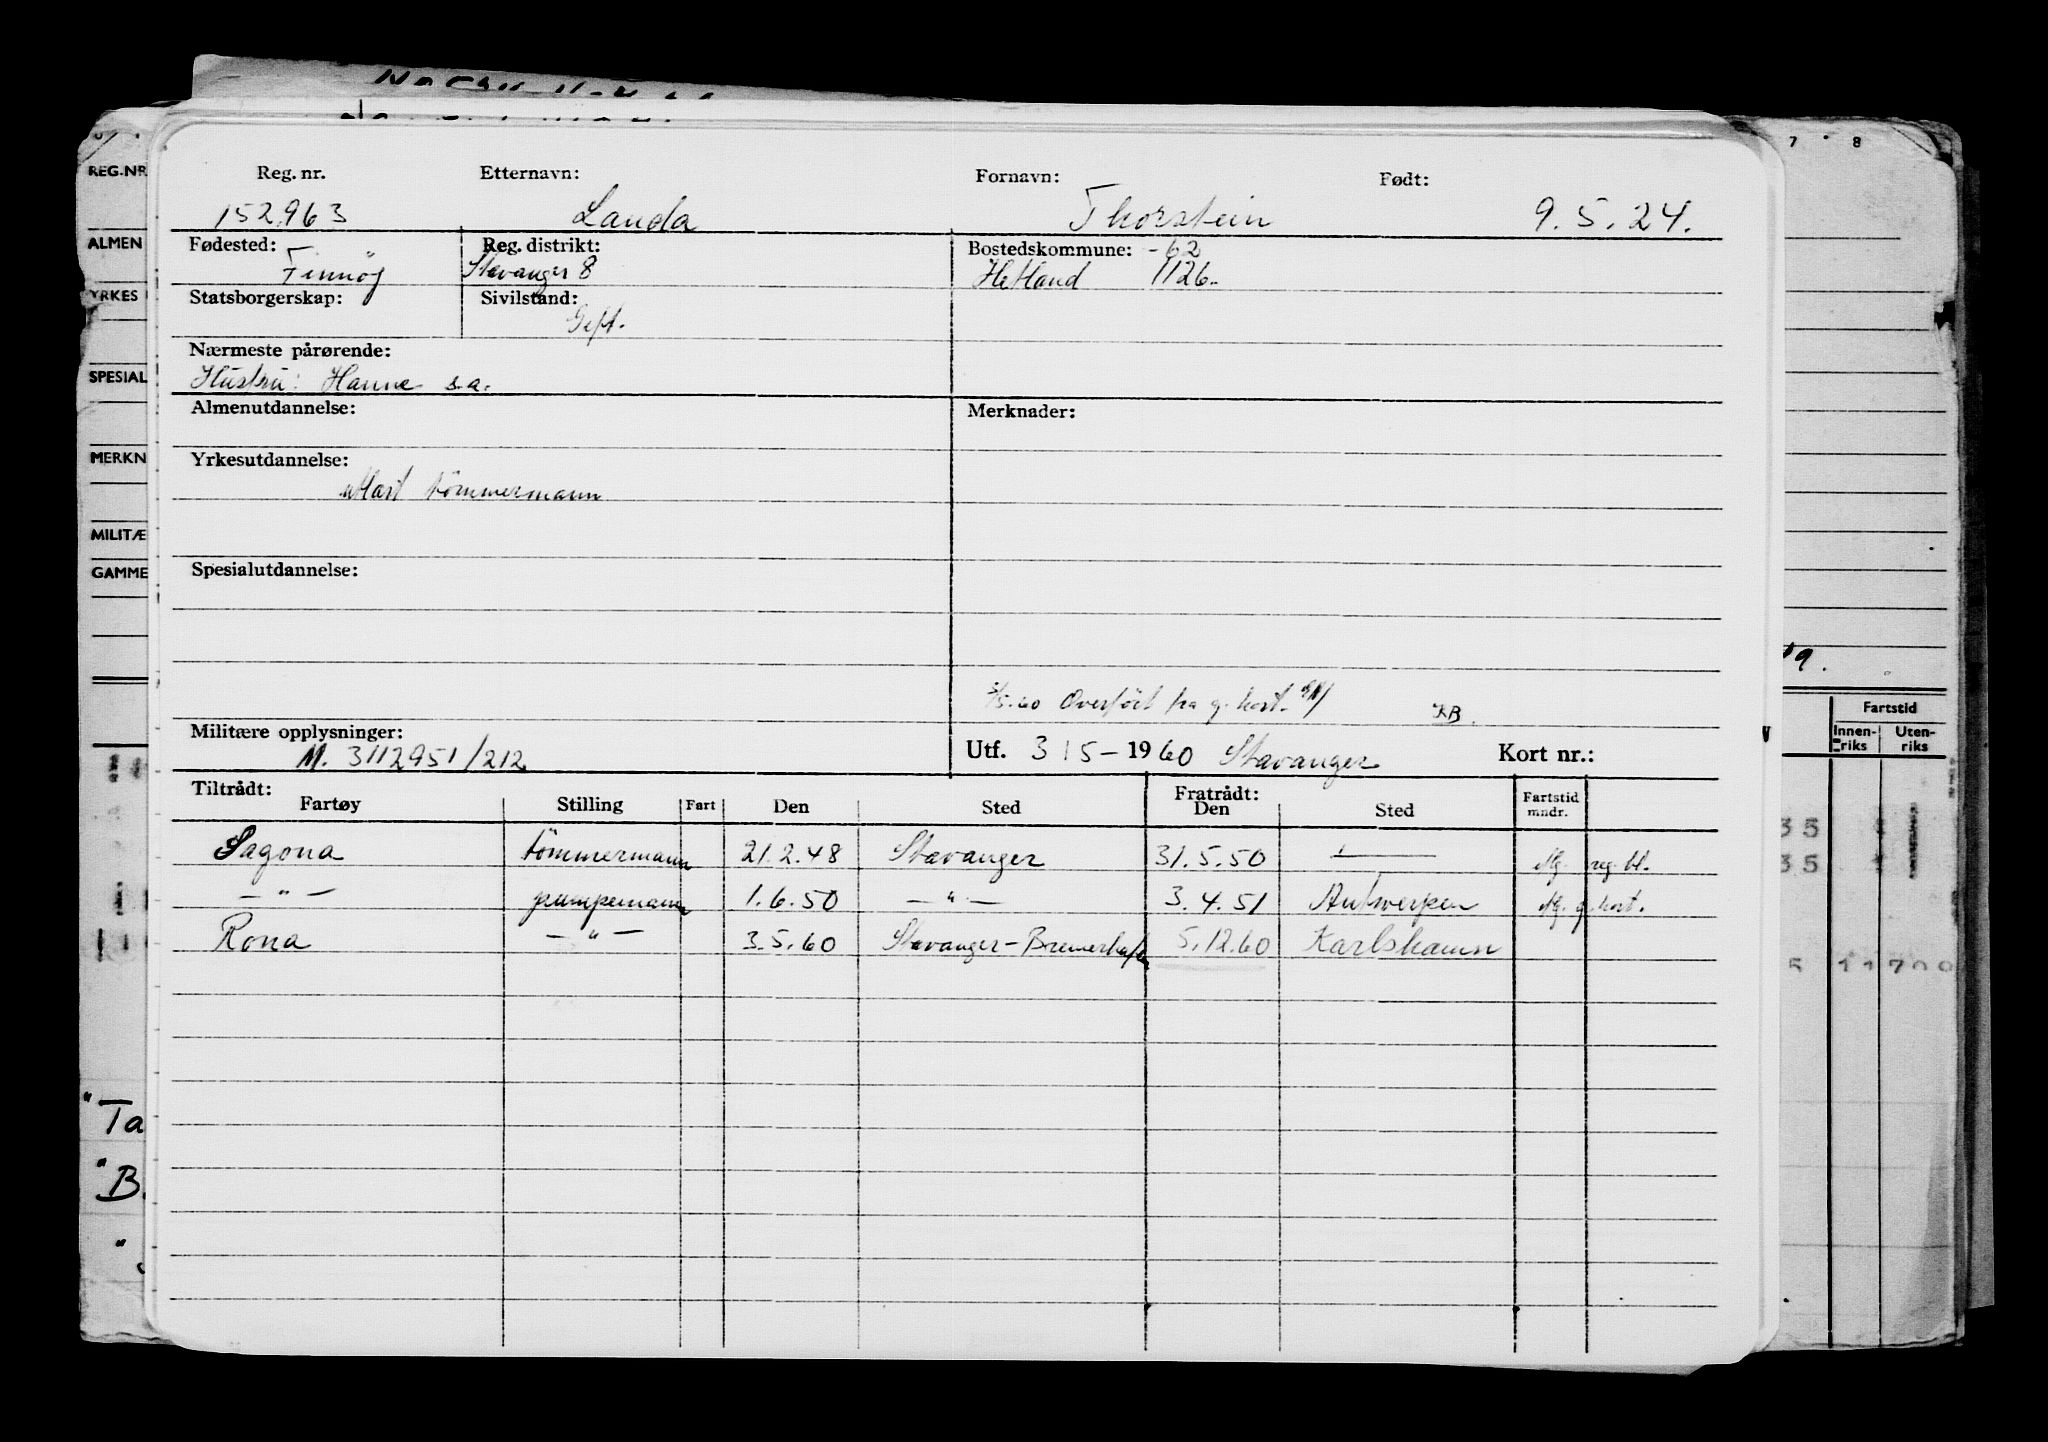 REG.NR
ALMEN
YRKES
SPESIAL
MERKN
MILITÆ
GAMME
7 8
Reg. nr. Etternavn: Fornavn: Født:
152963 Landa Thorstein 9.5.24.
Fødested: Reg. distrikt: Bostedskommune: -62
Finnöy Stavanger 8 Hetland 1126.
Statsborgerskap: Sivilstand:
Gift.
Nærmeste pårørende:
Hustru: Hanne s.a.
Almenutdannelse: Merknader:
Yrkesutdannelse:
Mast tömmermann
Spesialutdannelse:
3/5.60 Overfört fra g. kort. KB.
Militære opplysninger:
M. 3112951/212
Utf. 3/5-1960 Stavanger Kort nr.:
Tiltrådt: Fratrådt:
Fartøy Stilling Fart Den Sted Den Sted Fartstid mndr.
Sagona tömmermann 21.2.48 Stavanger 31.5.50 — reg. bl.
— " — pumpemann 1.6.50 — " — 3.4.51 Antwerpen g. kort.
Rona — " — 3.5.60 Stavanger-Bremerhafen 5.12.60 Karlshamn
Fartstid
Innen-riks Uten-riks
35
35
5 11700
"Ta
"B.
"